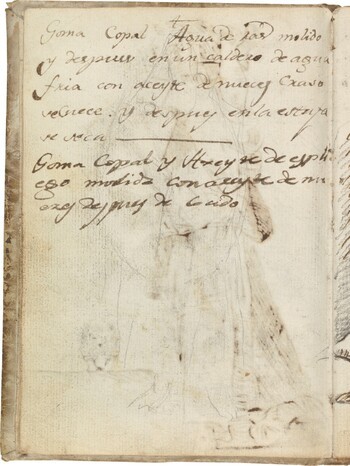 Goma Copal Agua de ras molido
y despues en un caldero de agua
fria con aceyte de nueces Craso
se cuece. y despues en la estufa
se seca
Goma Copal y Azeyte de espli-
ego molida con aceyte de nu
ezes despues de